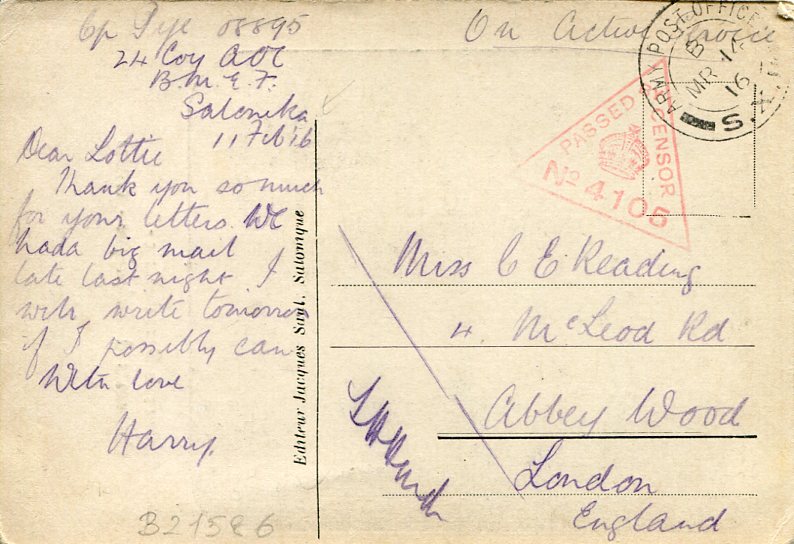 Cpl Pye 08895
24 Coy AOC
B.M.E.F.
Salonika
11 Feb 16
Dear Lottie
Thank you so much
for your letters. We
had a big mail
late last night I
will write tomorrow
if I possibly can
With love
Harry.
B21586
Editeur Jacques Saul, Salonique
On Active Service
ARMY POST OFFICE
B
MR 14
16
S.X.
PASSED BY CENSOR
No 4105
Miss C E Reading
4. McLeod Rd
Abbey Wood
London
England